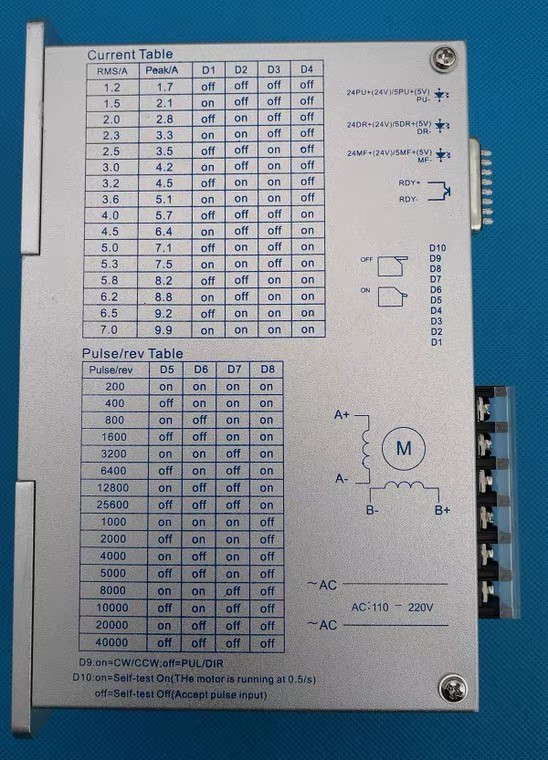 Current Table
RMS/A Peak/A D1 D2 D3 D4
1.2 1.7 off off off off
1.5 2.1 off off off on
2.0 2.8 off off on off
2.3 3.3 off off on on
2.5 3.5 off on off off
3.0 4.2 off on off on
3.2 4.5 off on on off
3.6 5.1 off on on on
4.0 5.7 on off off off
4.5 6.4 on off off on
5.0 7.1 on off on off
5.3 7.5 on off on on
5.8 8.2 on on off off
6.2 8.8 on on off on
6.5 9.2 on on on off
7.0 9.9 on on on on
Pulse/rev Table
Pulse/rev D5 D6 D7 D8
200 on on on on
400 off on on on
800 on off on on
1600 off off on on
3200 on on off on
6400 off on off on
12800 on off off on
25600 off off off on
1000 on on on off
2000 off on on off
4000 on off on off
5000 off off on off
8000 on on off off
10000 off on off off
20000 on off off off
40000 off off off off
D9:on=CW/CCW,off=PUL/DIR
D10:on=Self-test On(THe motor is running at 0.5/s)
off=Self-test Off(Accept pulse input)
24PU+(24V)/5PU+(5V)
PU-
24DR+(24V)/5DR+(5V)
DR-
24MF+(24V)/5MF+(5V)
MF-
RDY+
RDY-
OFF
ON
D10
D9
D8
D7
D6
D5
D4
D3
D2
D1
A+
M
A-
B- B+
~AC
AC:110 - 220V
~AC